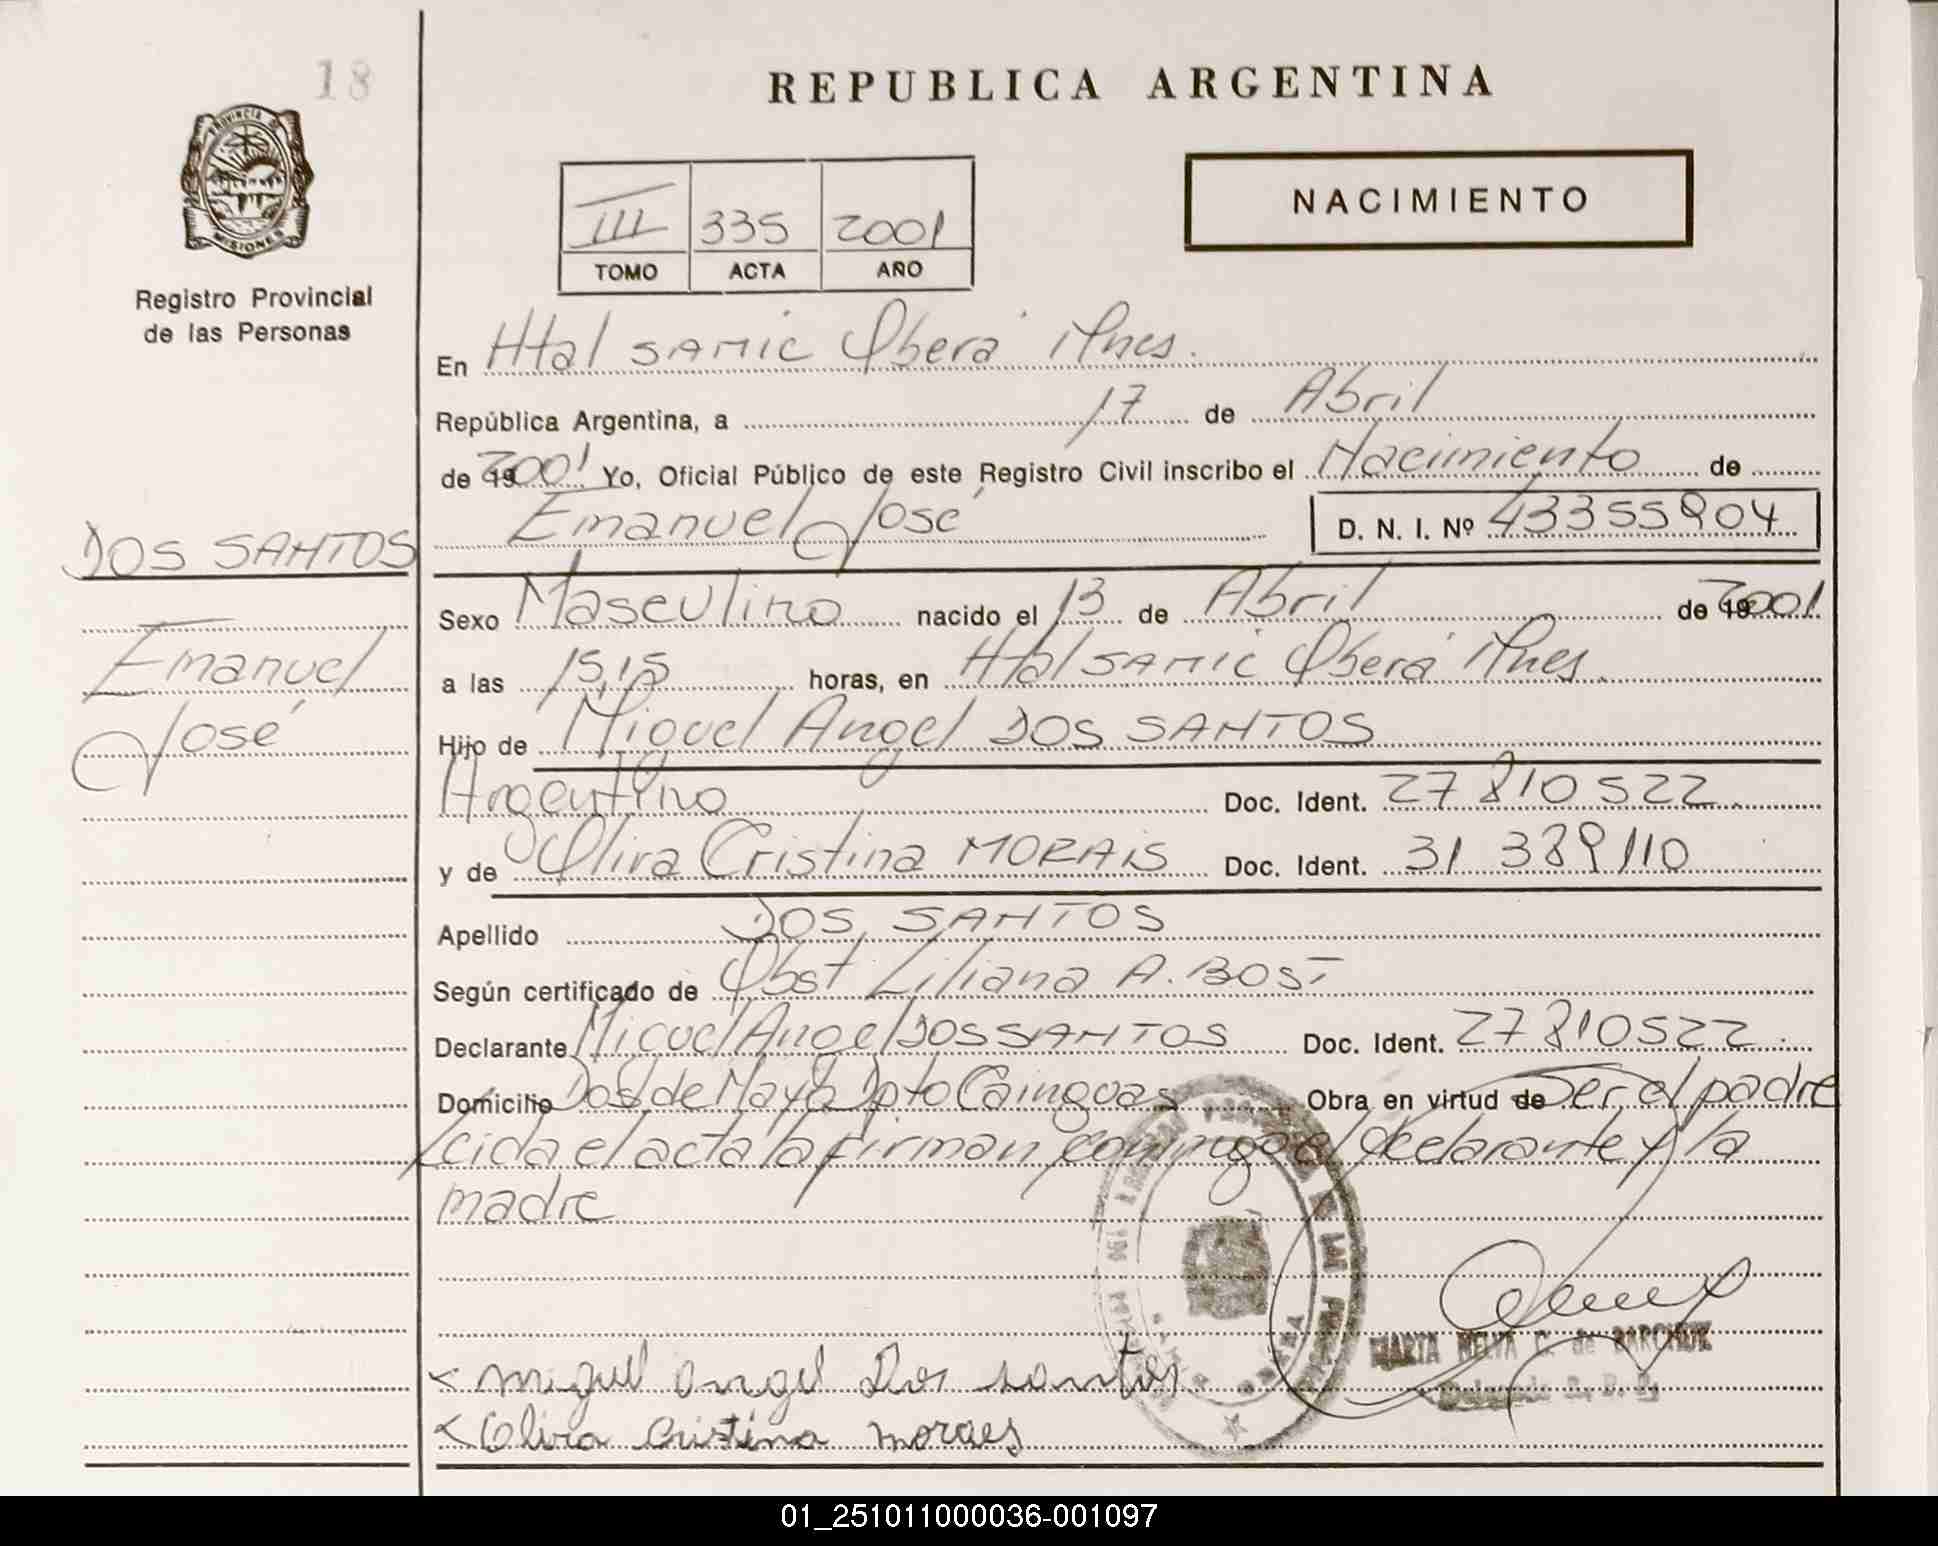 18
REPUBLICA ARGENTINA
PROVINCIA DE
MISIONES
Registro Provincial
de las Personas
III 335 2001
TOMO ACTA AÑO
NACIMIENTO
En Htal SAMIC Oberá Mnes.
República Argentina, a 17 de Abril
de 2001 Yo, Oficial Público de este Registro Civil inscribo el Nacimiento de
Emanuel José D. N. I. Nº 43355904
DOS SANTOS
Emanuel
José
Sexo Masculino nacido el 13 de Abril de 2001
a las 15,15 horas, en Htal SAMIC Oberá Mnes.
Hijo de Miguel Angel DOS SANTOS
Argentino Doc. Ident. 27 810 522
y de Olira Cristina MORAIS Doc. Ident. 31 389 110
Apellido DOS SANTOS
Según certificado de Obst Liliana A. BOST
Declarante Miguel Angel DOS SANTOS Doc. Ident. 27 810522
Domicilio Dos de Mayo Dpto Cainguas Obra en virtud de Ser el padre
Leida el acta la firman conmigo el declarante y la
madre
MARTA NELVA C. de BARCHUK
Delegada R. P. P.
miguel angel Dos santos
Olira Cristina moraes
01_251011000036-001097